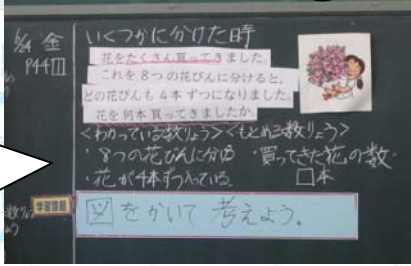 5/24 金
P44 1
いくつかに分けた時
花をたくさん買ってきました。
これを8つの花びんに分けると、
どの花びんも4本ずつになりました。
花を何本買ってきましたか。
<わかっている数りょう><もとめる数りょう>
・8つの花びんに分ける ・買ってきた花の数
・花が4本ずつ入っている □本
学習課題
図をかいて考えよう。